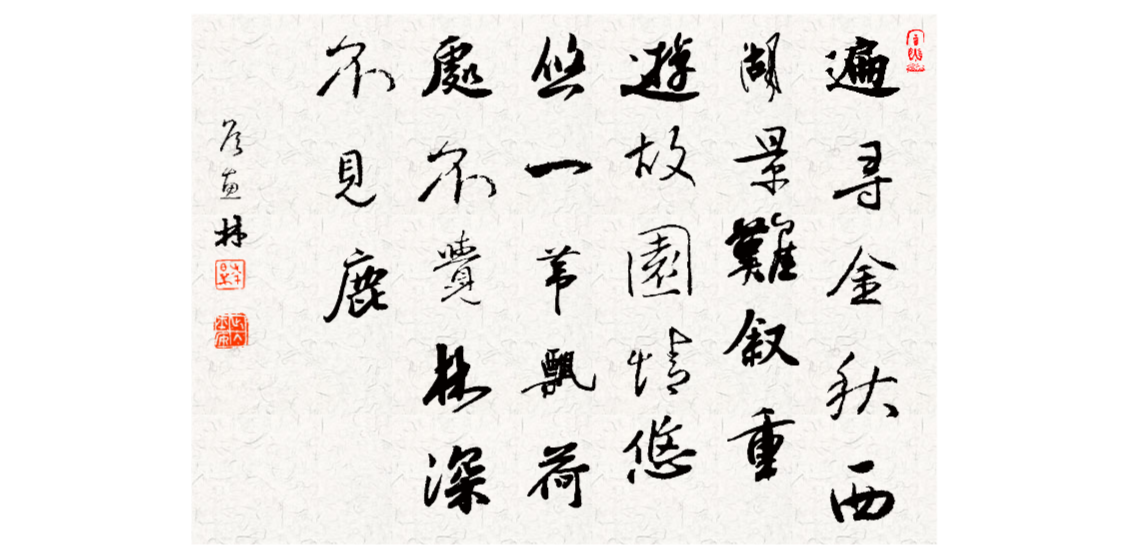 遍尋金秋西
湖景難叙重
遊故園情悠
悠一苇飄荷
處不覺林深
不見鹿